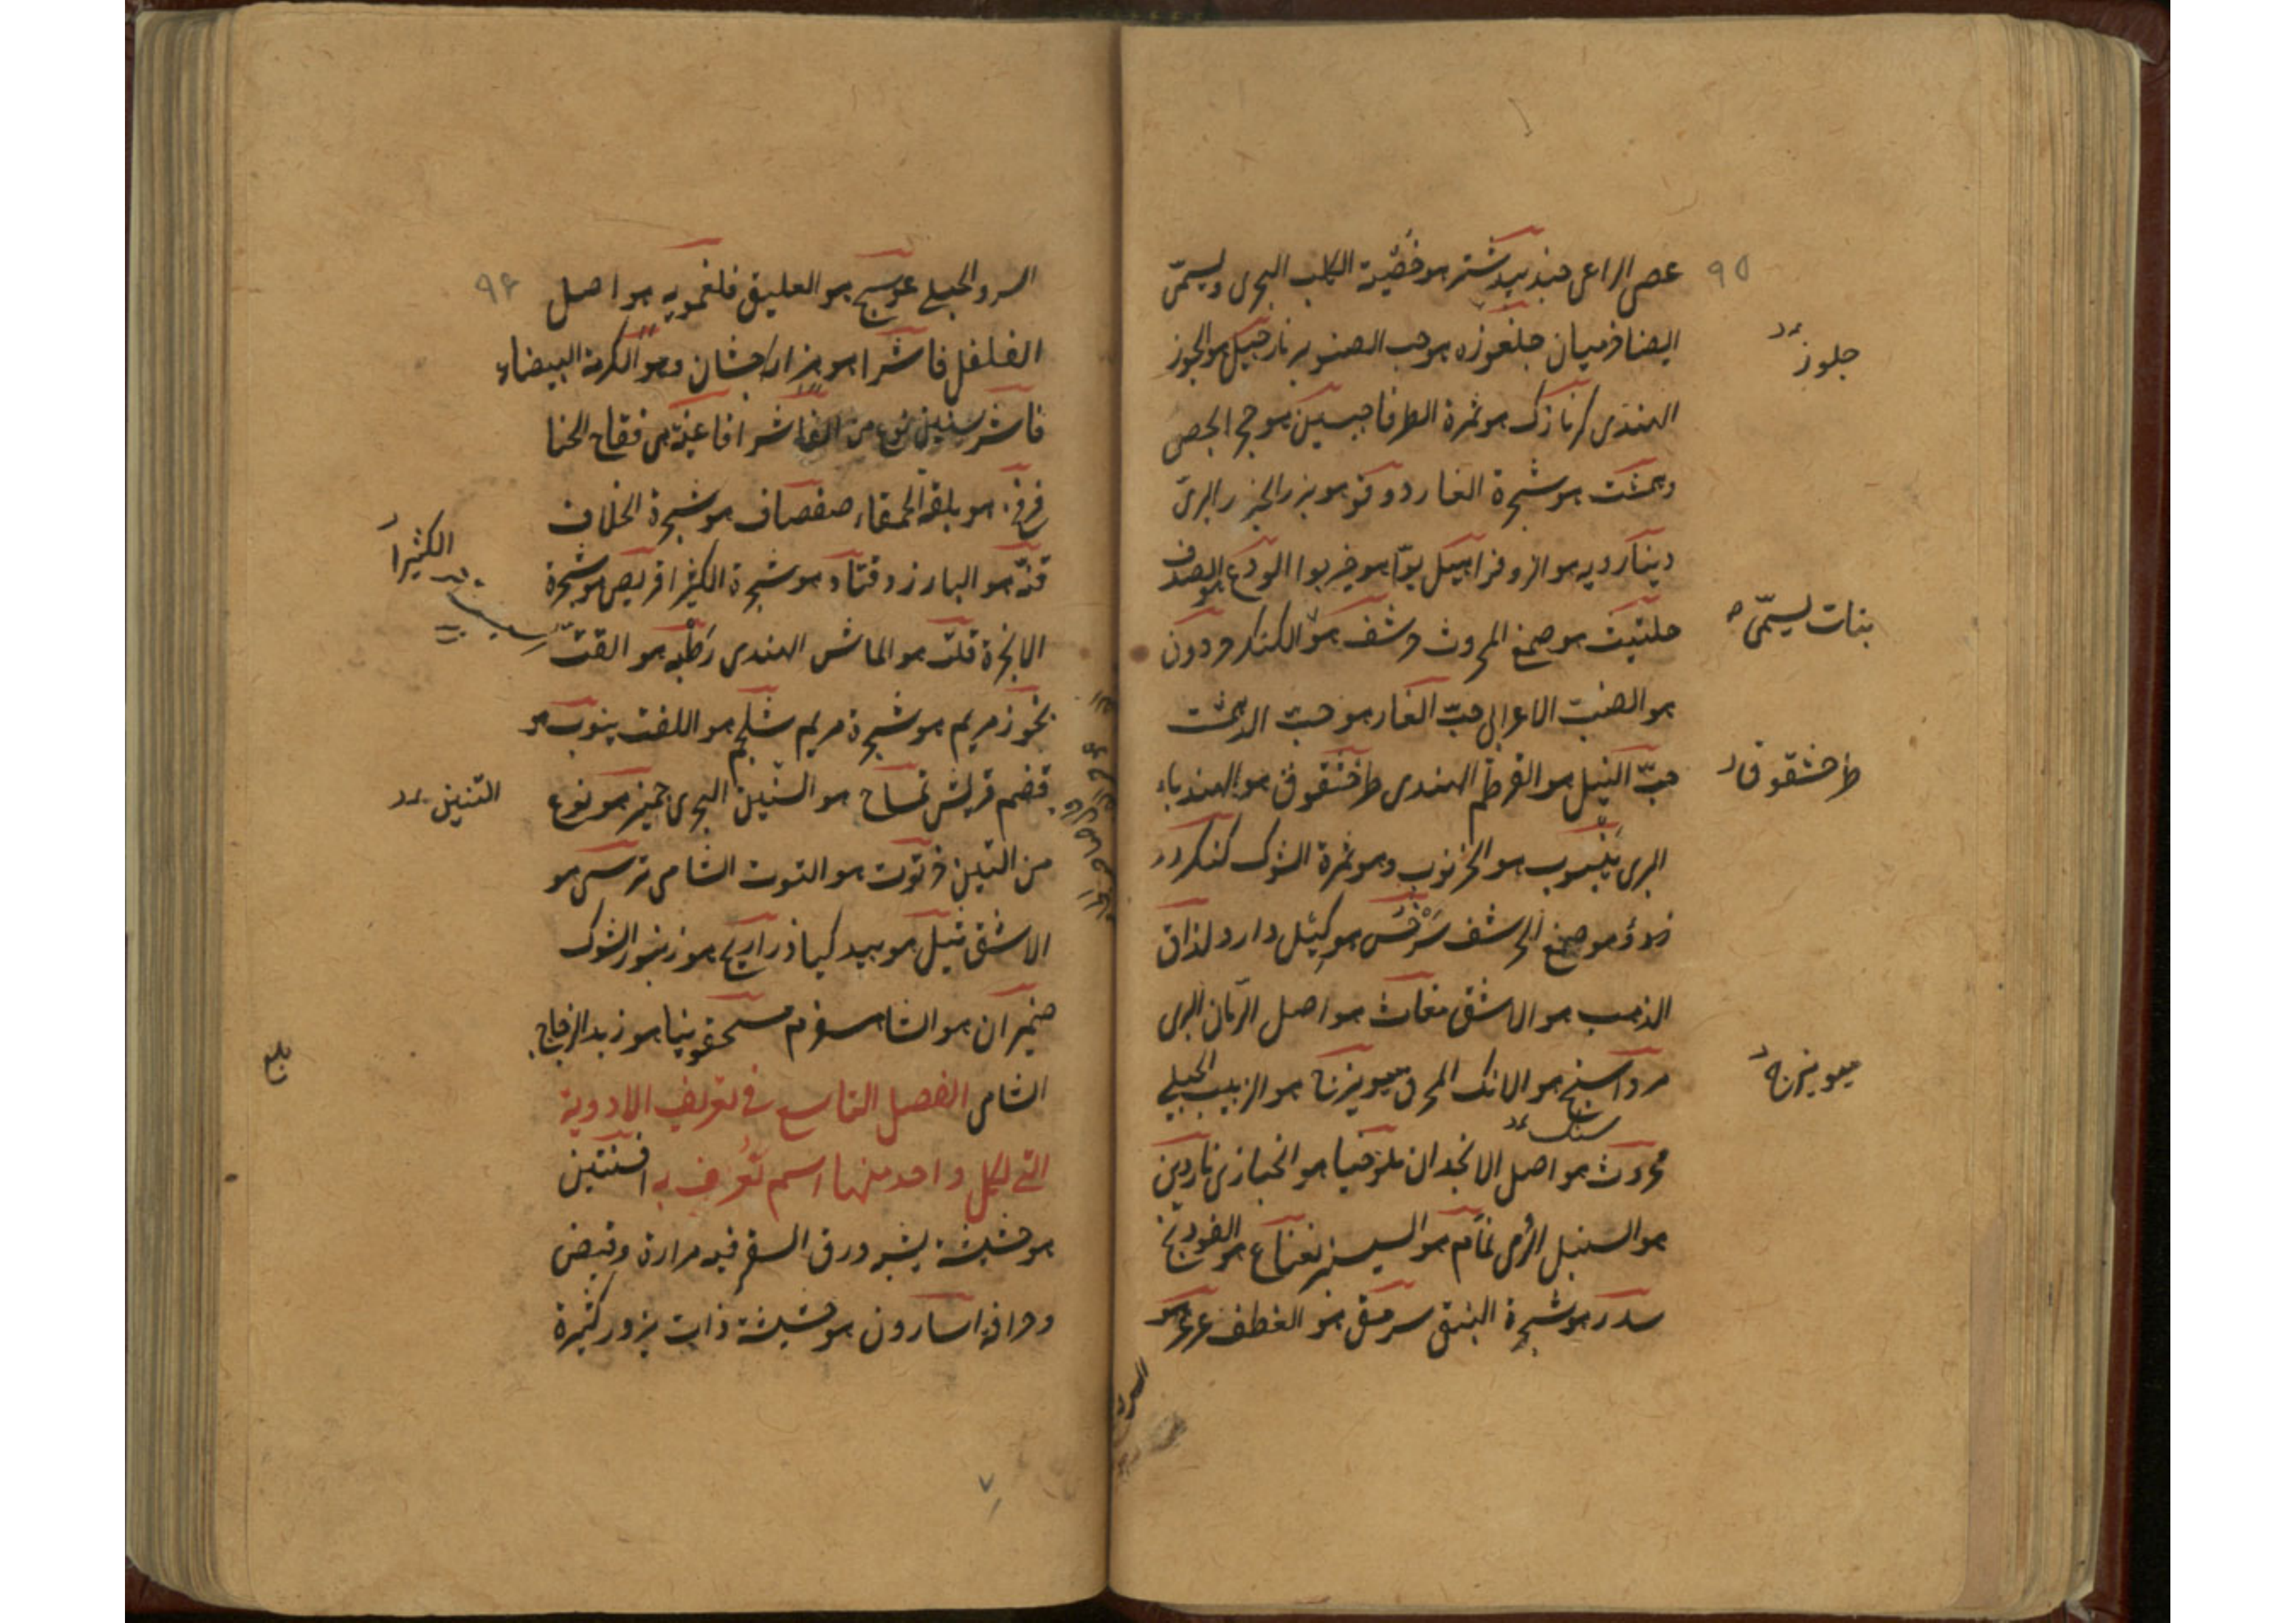 ٩٥
عصى الراعى جندبيدستر هو خصية الكلب البحرى ويسمّى
ايضا خرميان جلغوزه هو حب الصنوبر نارجيل هو الجوز
جلوز
الهندى كزمازك هو ثمرة الطرفا جبسين هو حجر الجص
دهمشت هو شجرة الغار دوقو هو بزر الجزر البرىّ
دينارويه هو الزوفرا هيل بوّا هو خيربوا الودع هو الصدف
حلتيت هو صمغ المحروث حرشف هو الكنكر حردون
بنات يسمّى
هو الضب الاعرابى حبّ الغار هو حبّ الدهمشت
حبّ النيل هو القرطم الهندى طرخشقوق هو الهندباء
طرخشقوق
البرى ينبوب هو الخرنوب وهو ثمرة الشوك كنكرزد
هو صمغ الحرشف سرخس هو كيل دارو لذاق
الذهب هو الاشق مغاث هو اصل الرمّان البرى
مرداسنج هو الانك المحرق ميويزج هو الزبيب الجبلى
ميويزج
محروث هو اصل الانجدان ملوخيا هو الخبازى ناردين
هو السنبل الرومى نمّام هو السيسنبر نعناع هو الفودنج
سدر هو شجرة النبق سرمق هو القطف عرعر هو
السرو
٩٦
السرو الجبلى عوسج هو العليق فلفمويه هو اصل
الفلفل فاشرا هو هزار جشان وهو الكرمة البيضاء
فاشرستين نوع من الفاشرا فاغية هى فقاح الحنا
فرفخ هو بقلة الحمقاء صفصاف هو شجرة الخلاف
الكثيرا
قنة هو البارزد قتاد هو شجرة الكثيرا قريص هو شجرة
الانجرة قلت هو الماش الهندى رطبه هو القتّ
بخور مريم هو شجرة مريم شلجم هو اللفت ينوب هو
قضم قريش تمساح هو التنين البحرى جميز هو نوع
التنين
من التين خرتوت هو التوت الشامى ترسى هو
الاشق نيل هو بيد كيا ذراريح هو زنبور الشوك
ضميران هو الشاهسفرم مسحقونيا هو زبد الزجاج
بلغ
الشامى الفصل التاسع فى تعريف الادوية
التى لكل واحد منها اسم تعرف به افسنتين
هو حشيشة يشبه ورق السعتر فيه مرارة وقبض
وحرافة اسارون هو حشيشة ذات بزور كثيرة